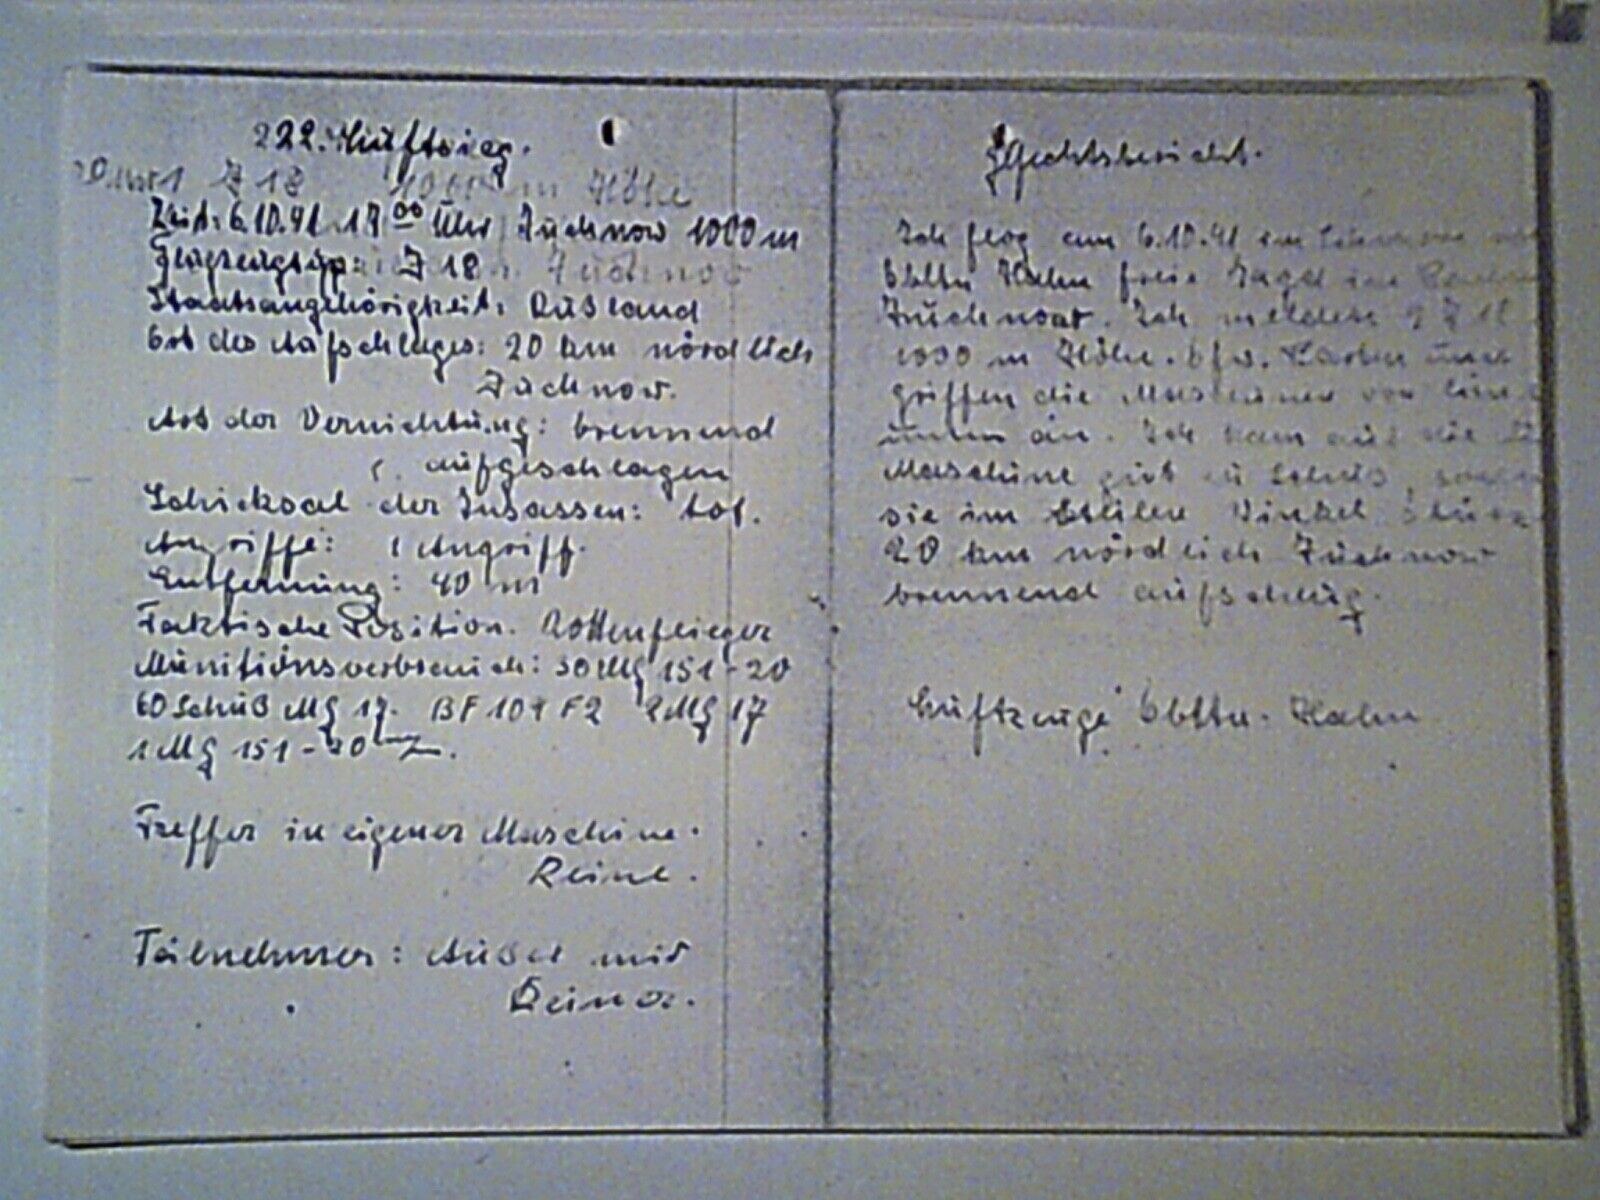 222. Luftsieg.
J 18 1000 m Höhe
Zeit: 6.10.41 17 00 Uhr Juchnow 1000 m
Flugzeugtyp: J 18 Juchnow
Staatsangehörigkeit: Rußland
Ort des Aufschlages: 20 km nördlich
Juchnow.
Art der Vernichtung: brennend
aufgeschlagen
Schicksal der Insassen: tot.
Angriffe: 1 Angriff.
Entfernung: 40 m
Taktische Position. Rottenflieger
Munitionsverbrauch: 30 MG 151-20
60 Schuß MG 17. BF 109 F2 2 MG 17
1 MG 151-20
Treffer in eigener Maschine.
Keine.
Teilnehmer: Außer mir
Keiner.
Gefechtsbericht.
Ich flog am 6.10.41 im
Obltn Hahn freie Jagd im
Juchnow. Ich meldete 2 J 18
1000 m Höhe. Ofw. und
griffen die Maschinen von
unten an. Ich kam auf die
Maschine gut zu Schuß,
sie im steilen Winkel
20 km nördlich Juchnow
brennend aufschlug.
Luftzeuge Obltn. Hahn